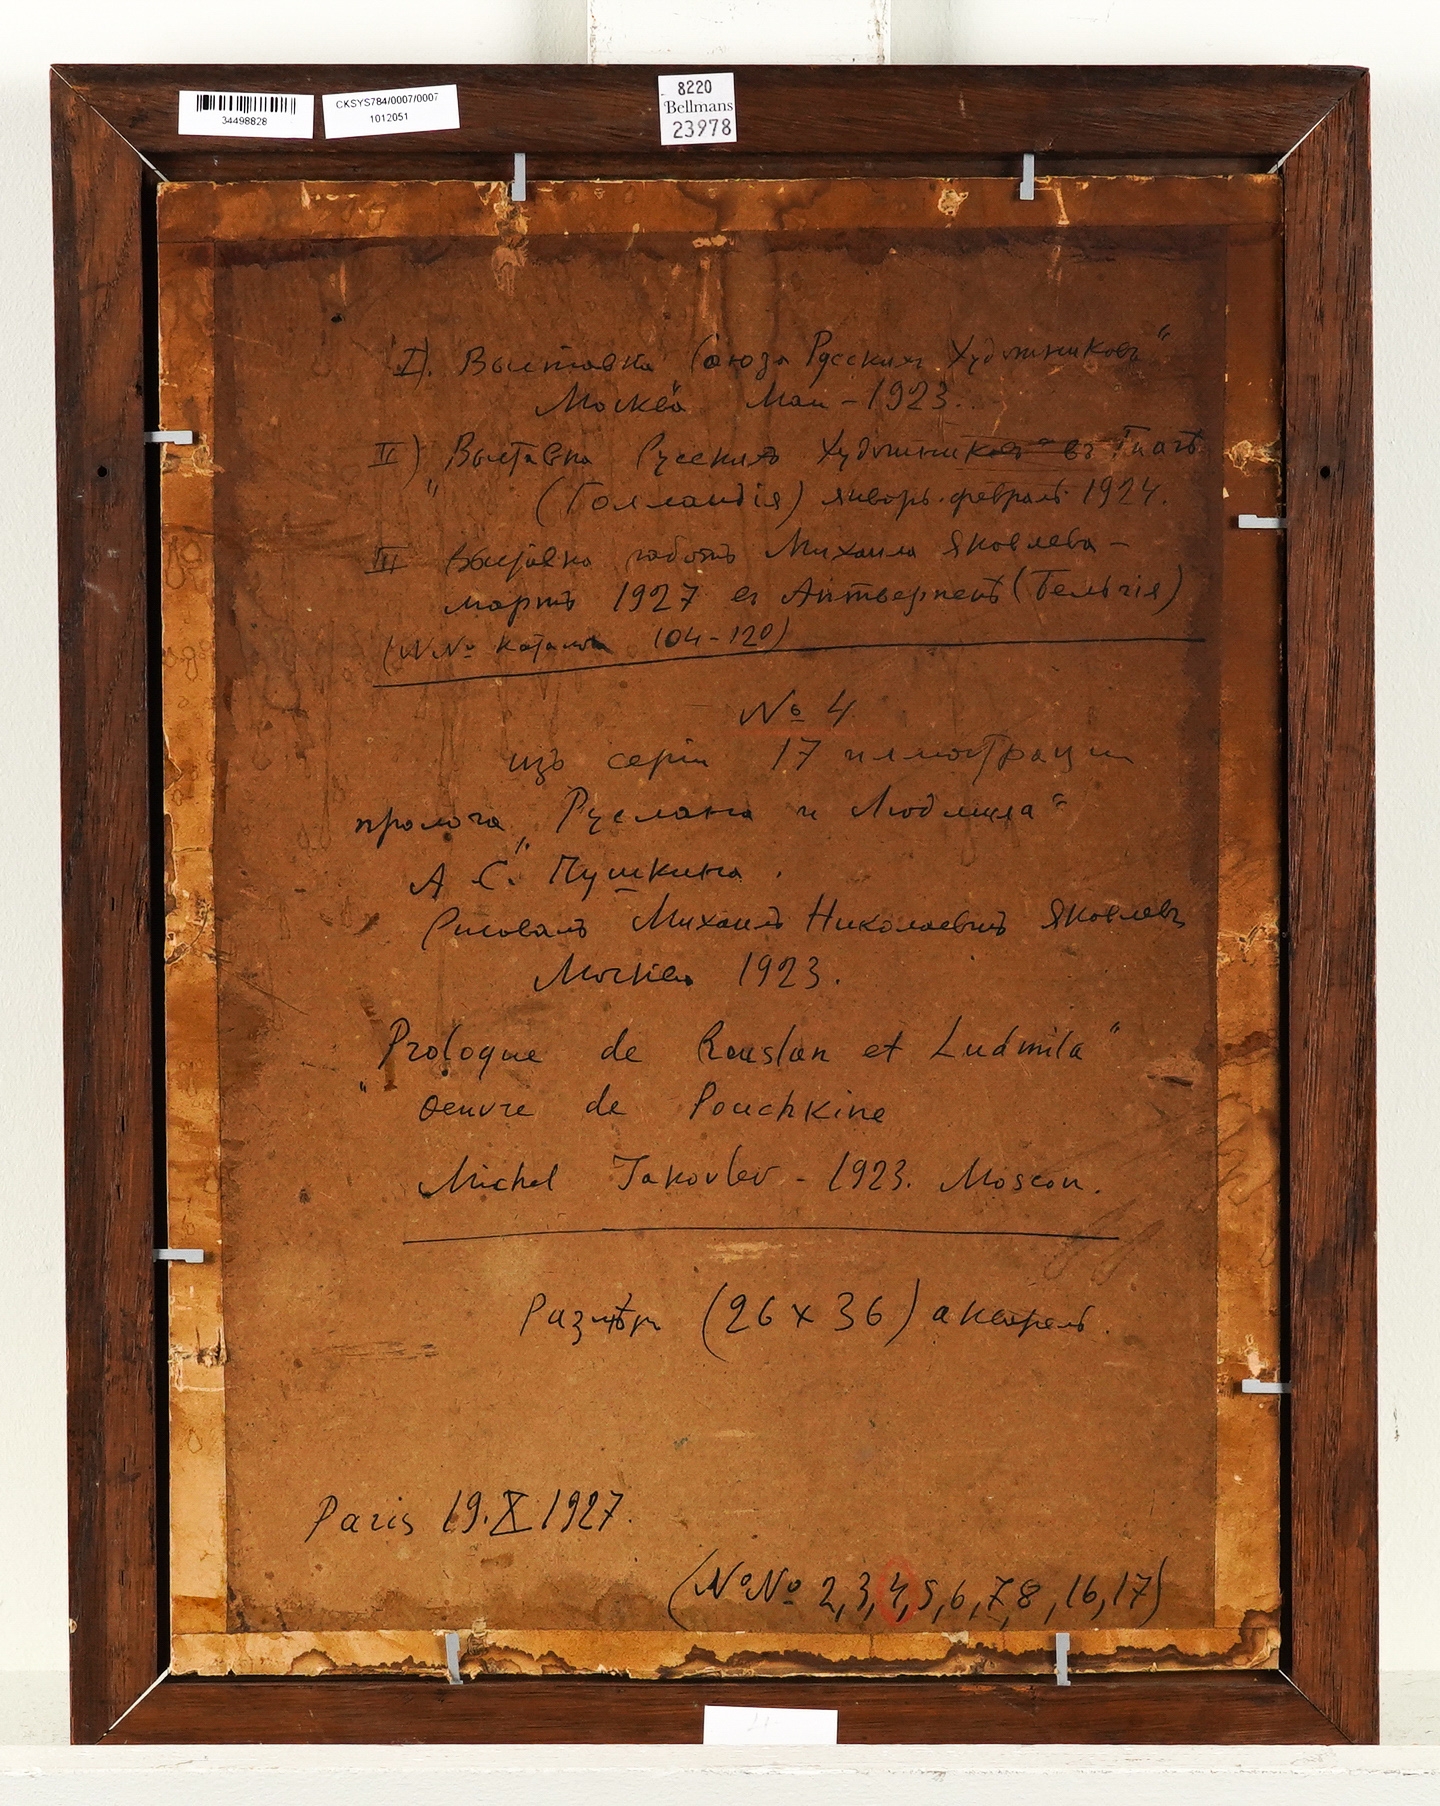 34498828
CKSYS784/0007/0007
1012051
8220
Bellmans
23978
I). Выставка Союза Русских Художниковъ“
Москва Май – 1923.
II) „Выставка Русскихъ Художниковъ“ въ Гаагѣ
(Голландія) январь-февраль 1924.
III Выставка работъ Михаила Яковлева –
мартъ 1927 въ Антверпенѣ (Бельгія)
(№№ каталога 104–120)
№ 4
изъ серіи 17 иллюстрации
пролога „Руслана и Людмила“
А. С. Пушкина.
Рисовалъ Михаилъ Николаевичъ Яковлевъ
Москва 1923.
„Prologue de Rouslan et Ludmila“
oeuvre de Pouchkine
Michel Jakovlev – 1923. Moscou.
Размѣръ (26 x 36) акварель.
Paris 19.X.1927.
(№№ 2,3,4,5,6,7,8,16,17)